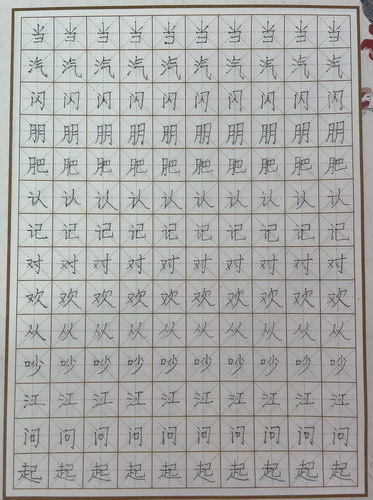 当当当当当当当当当当
汽汽汽汽汽汽汽汽汽汽
闪闪闪闪闪闪闪闪闪闪
朋朋朋朋朋朋朋朋朋朋
肥肥肥肥肥肥肥肥肥肥
认认认认认认认认认认
记记记记记记记记记记
对对对对对对对对对对
欢欢欢欢欢欢欢欢欢欢
从从从从从从从从从从
吵吵吵吵吵吵吵吵吵吵
江江江江江江江江江江
问问问问问问问问问问
起起起起起起起起起起